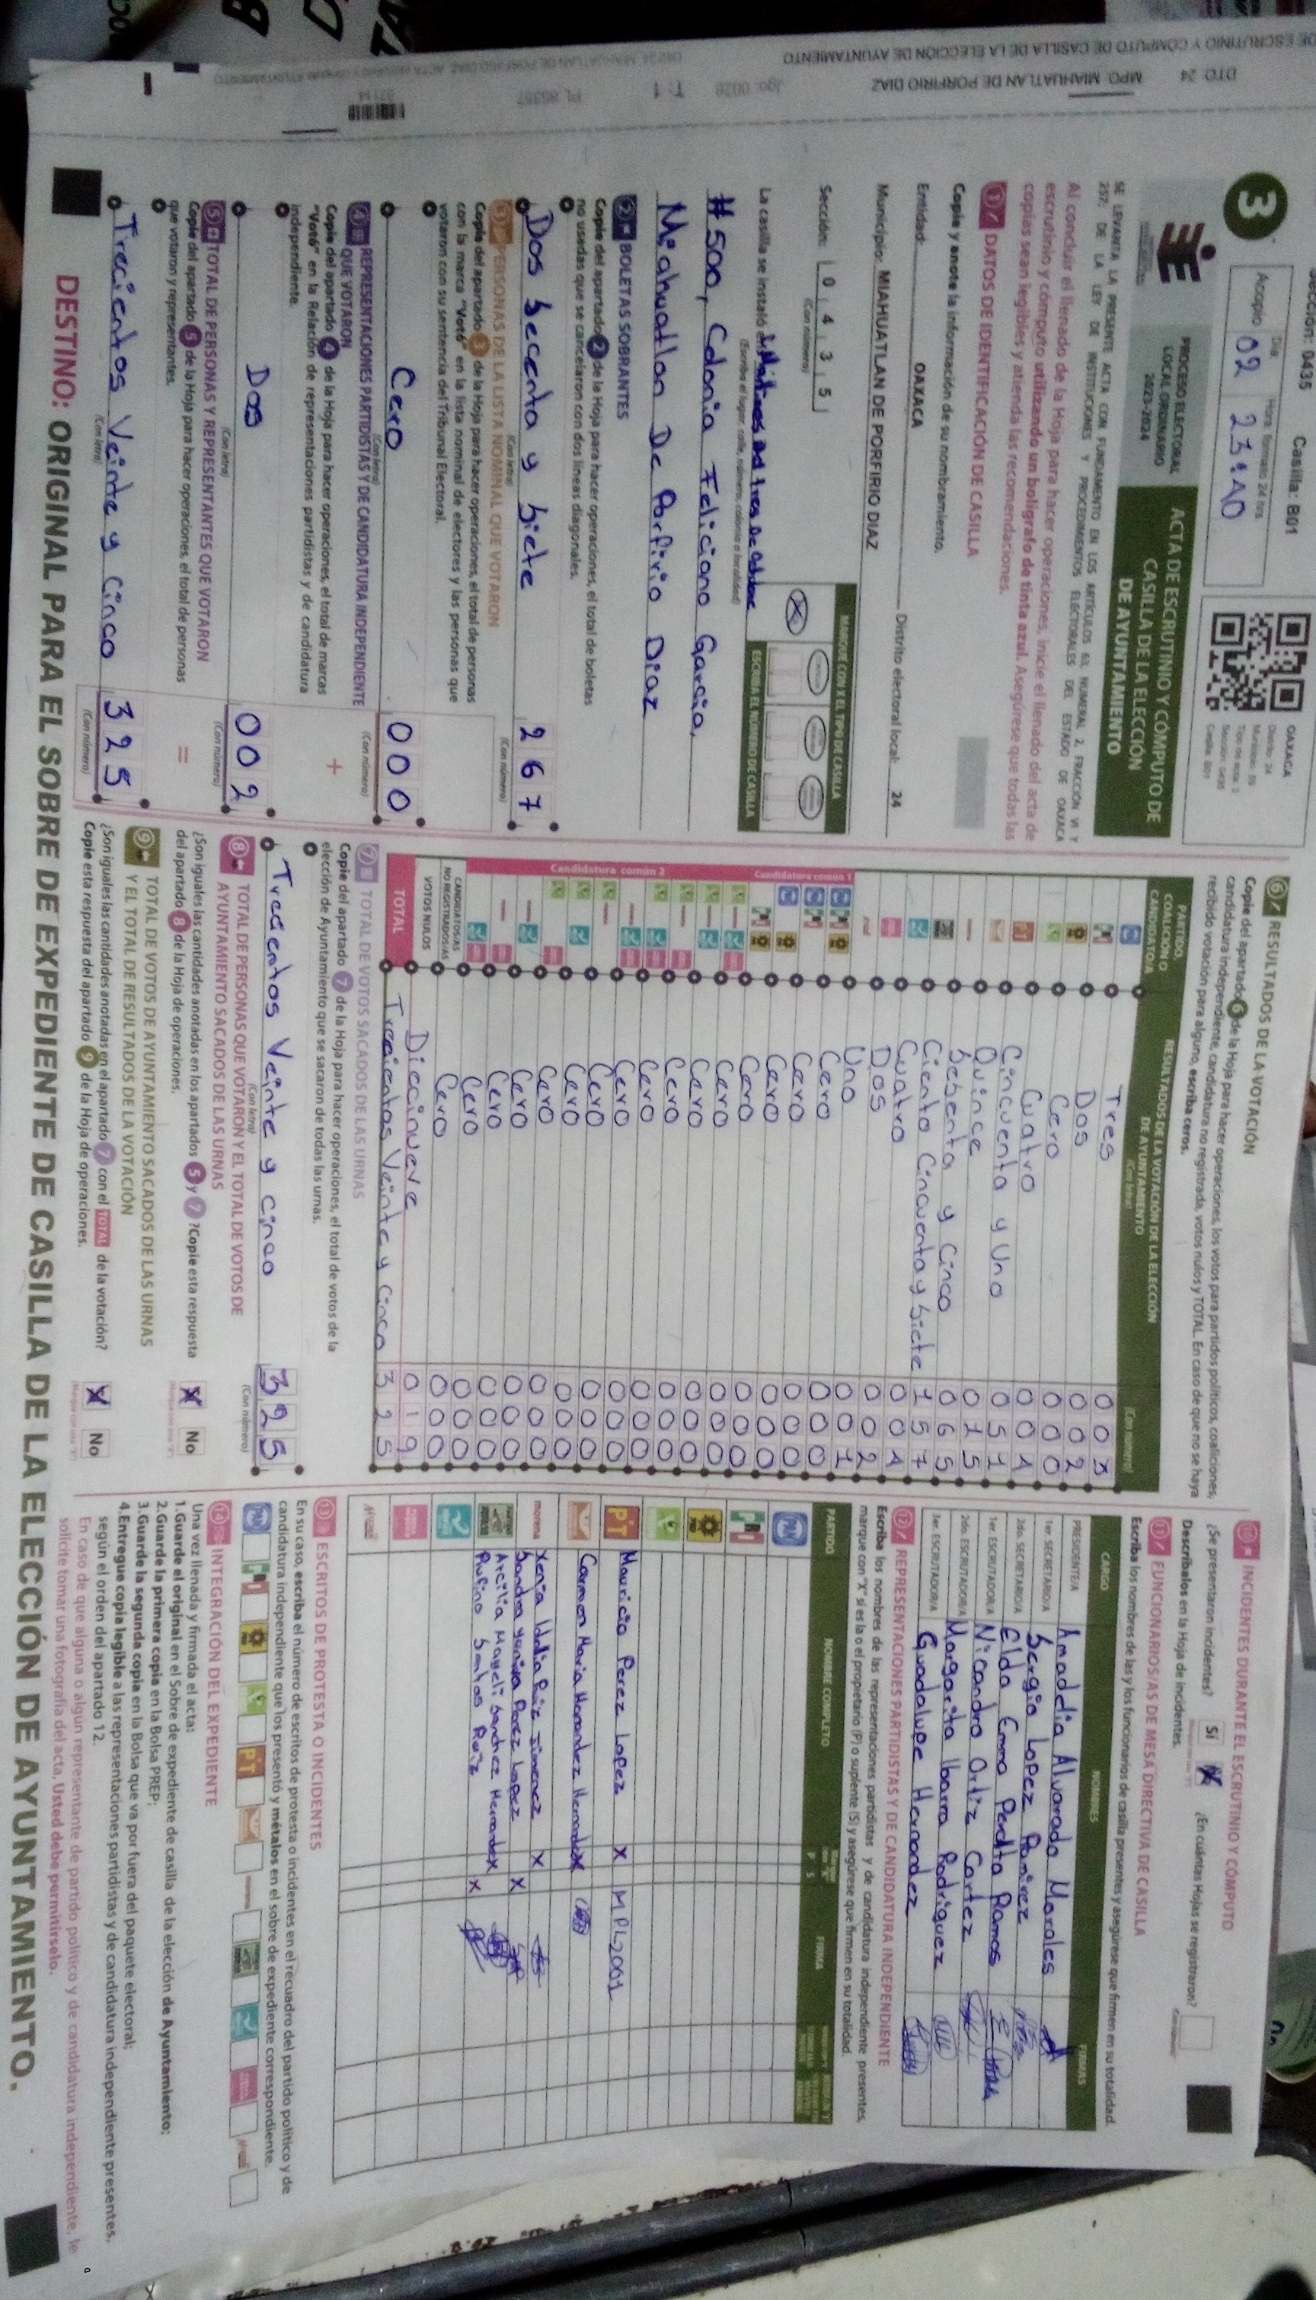 Sección: 0435 Casilla: B01
3
Acopio
Día
02
Hora formato 24 hrs
23:10
OAXACA
PROCESO ELECTORAL
LOCAL ORDINARIO
2023-2024
ACTA DE ESCRUTINIO Y CÓMPUTO DE
CASILLA DE LA ELECCIÓN
DE AYUNTAMIENTO
SE LEVANTA LA PRESENTE ACTA CON FUNDAMENTO EN LOS ARTÍCULOS 63, NUMERAL 2, FRACCIÓN VI Y
257; DE LA LEY DE INSTITUCIONES Y PROCEDIMIENTOS ELECTORALES DEL ESTADO DE OAXACA
Al concluir el llenado de la Hoja para hacer operaciones, inicie el llenado del acta de
escrutinio y cómputo utilizando un bolígrafo de tinta azul. Asegúrese que todas las
copias sean legibles y atienda las recomendaciones.
1 DATOS DE IDENTIFICACIÓN DE CASILLA
Copie y anote la información de su nombramiento.
Entidad: OAXACA Distrito electoral local: 24
Municipio: MIAHUATLAN DE PORFIRIO DIAZ
Sección: 0 4 3 5
(Con número)
MARQUE CON X EL TIPO DE CASILLA
ESCRIBA EL NÚMERO DE CASILLA
La casilla se instaló en:
(Escriba el lugar, calle, número, colonia o localidad)
# 500, Colonia Feliciano Garcia,
Miahuatlan De Porfirio Diaz
2 BOLETAS SOBRANTES
Copie del apartado 2 de la Hoja para hacer operaciones, el total de boletas
no usadas que se cancelaron con dos líneas diagonales.
Dos Secento y Siete 2 6 7
(Con letra) (Con número)
3 PERSONAS DE LA LISTA NOMINAL QUE VOTARON
Copie del apartado 3 de la Hoja para hacer operaciones, el total de personas
con la marca "Votó" en la lista nominal de electores y las personas que
votaron con su sentencia del Tribunal Electoral.
Cero 0 0 0
(Con letra) (Con número)
4 REPRESENTACIONES PARTIDISTAS Y DE CANDIDATURA INDEPENDIENTE
QUE VOTARON
Copie del apartado 4 de la Hoja para hacer operaciones, el total de marcas
"Votó" en la Relación de representaciones partidistas y de candidatura
independiente.
+
Dos 0 0 2
(Con letra) (Con número)
5 TOTAL DE PERSONAS Y REPRESENTANTES QUE VOTARON
Copie del apartado 5 de la Hoja para hacer operaciones, el total de personas
que votaron y representantes.
=
Treciento​s Veinte y Cinco 3 2 5
(Con letra) (Con número)
6 RESULTADOS DE LA VOTACIÓN
Copie del apartado 6 de la Hoja para hacer operaciones, los votos para partidos políticos, coaliciones,
candidatura independiente, candidatura no registrada, votos nulos y TOTAL. En caso de que no se haya
recibido votación para alguno, escriba ceros.
PARTIDO, COALICIÓN O CANDIDATO/A
RESULTADOS DE LA VOTACIÓN DE LA ELECCIÓN
DE AYUNTAMIENTO
(Con letra) (Con número)
Tres 0 0 3
Dos 0 0 2
Cero 0 0 0
Cuatro 0 0 4
Cincuenta y Uno 0 5 1
Quince 0 1 5
Sesenta y Cinco 0 6 5
Ciento Cincuenta y Siete 1 5 7
Cuatro 0 0 4
Dos 0 0 2
Uno 0 0 1
Candidatura común 1
Cero 0 0 0
Cero 0 0 0
Cero 0 0 0
Cero 0 0 0
Candidatura común 2
Cero 0 0 0
Cero 0 0 0
Cero 0 0 0
Cero 0 0 0
Cero 0 0 0
Cero 0 0 0
Cero 0 0 0
Cero 0 0 0
Cero 0 0 0
Cero 0 0 0
Cero 0 0 0
CANDIDATOS/AS NO REGISTRADOS/AS Cero 0 0 0
VOTOS NULOS Diecinueve 0 1 9
TOTAL Trecientos Veinte y Cinco 3 2 5
7 TOTAL DE VOTOS SACADOS DE LAS URNAS
Copie del apartado 7 de la Hoja para hacer operaciones, el total de votos de la
elección de Ayuntamiento que se sacaron de todas las urnas.
Trecientos Veinte y Cinco 3 2 5
(Con letra) (Con número)
8 TOTAL DE PERSONAS QUE VOTARON Y EL TOTAL DE VOTOS DE
AYUNTAMIENTO SACADOS DE LAS URNAS
¿Son iguales las cantidades anotadas en los apartados 5 y 7 ? Copie esta respuesta
del apartado 8 de la Hoja de operaciones.
X No
9 TOTAL DE VOTOS DE AYUNTAMIENTO SACADOS DE LAS URNAS
Y EL TOTAL DE RESULTADOS DE LA VOTACIÓN
¿Son iguales las cantidades anotadas en el apartado 7 con el TOTAL de la votación?
Copie esta respuesta del apartado 9 de la Hoja de operaciones.
X No
10 INCIDENTES DURANTE EL ESCRUTINIO Y CÓMPUTO
¿Se presentaron incidentes? Sí X ¿En cuántas Hojas se registraron?
Descríbalos en la Hoja de incidentes.
11 FUNCIONARIOS/AS DE MESA DIRECTIVA DE CASILLA
Escriba los nombres de las y los funcionarios de casilla presentes y asegúrese que firmen en su totalidad.
CARGO NOMBRES FIRMAS
PRESIDENTE/A Amaddlia Alvarado Morales
1er. SECRETARIO/A Sergio Lopez Ramirez
2do. SECRETARIO/A Elda Emma Peralta Ramos
1er. ESCRUTADOR/A Nicandro Ortiz Cortez
2do. ESCRUTADOR/A Margarita Ibarra Rodriguez
3er. ESCRUTADOR/A Guadalupe Hernandez
12 REPRESENTACIONES PARTIDISTAS Y DE CANDIDATURA INDEPENDIENTE
Escriba los nombres de las representaciones partidistas y de candidatura independiente presentes,
marque con "X" si es la o el propietario (P) o suplente (S) y asegúrese que firmen en su totalidad.
PARTIDO NOMBRE COMPLETO P S FIRMA
PAN
PRI
PT Mauricio Perez Lopez X MPL2001
Carmen Maria Hernandez Hernandez X
morena Xenia Idalia Ruiz Jimenez X
Sandra Yaniza Perez Lopez X
Arcilia Mayeli Sanchez Hernandez X
Rufino Santos Ruiz X
13 ESCRITOS DE PROTESTA O INCIDENTES
En su caso, escriba el número de escritos de protesta o incidentes en el recuadro del partido político y de
candidatura independiente que los presentó y métalos en el sobre de expediente correspondiente.
14 INTEGRACIÓN DEL EXPEDIENTE
Una vez llenada y firmada el acta:
1.Guarde el original en el Sobre de expediente de casilla de la elección de Ayuntamiento;
2.Guarde la primera copia en la Bolsa PREP;
3.Guarde la segunda copia en la Bolsa que va por fuera del paquete electoral;
4.Entregue copia legible a las representaciones partidistas y de candidatura independiente presentes,
según el orden del apartado 12.
En caso de que alguna o algún representante de partido político y de candidatura independiente, le
solicite tomar una fotografía del acta, Usted debe permitírselo.
DESTINO: ORIGINAL PARA EL SOBRE DE EXPEDIENTE DE CASILLA DE LA ELECCIÓN DE AYUNTAMIENTO.
DTO. 24 MPO. MIAHUATLAN DE PORFIRIO DIAZ
DE ESCRUTINIO Y COMPUTO DE CASILLA DE LA ELECCION DE AYUNTAMIENTO